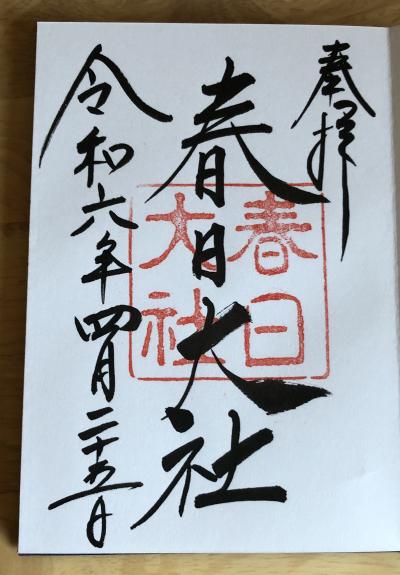 奉拝
春日大社
春日
大社
令和六年四月二十五日